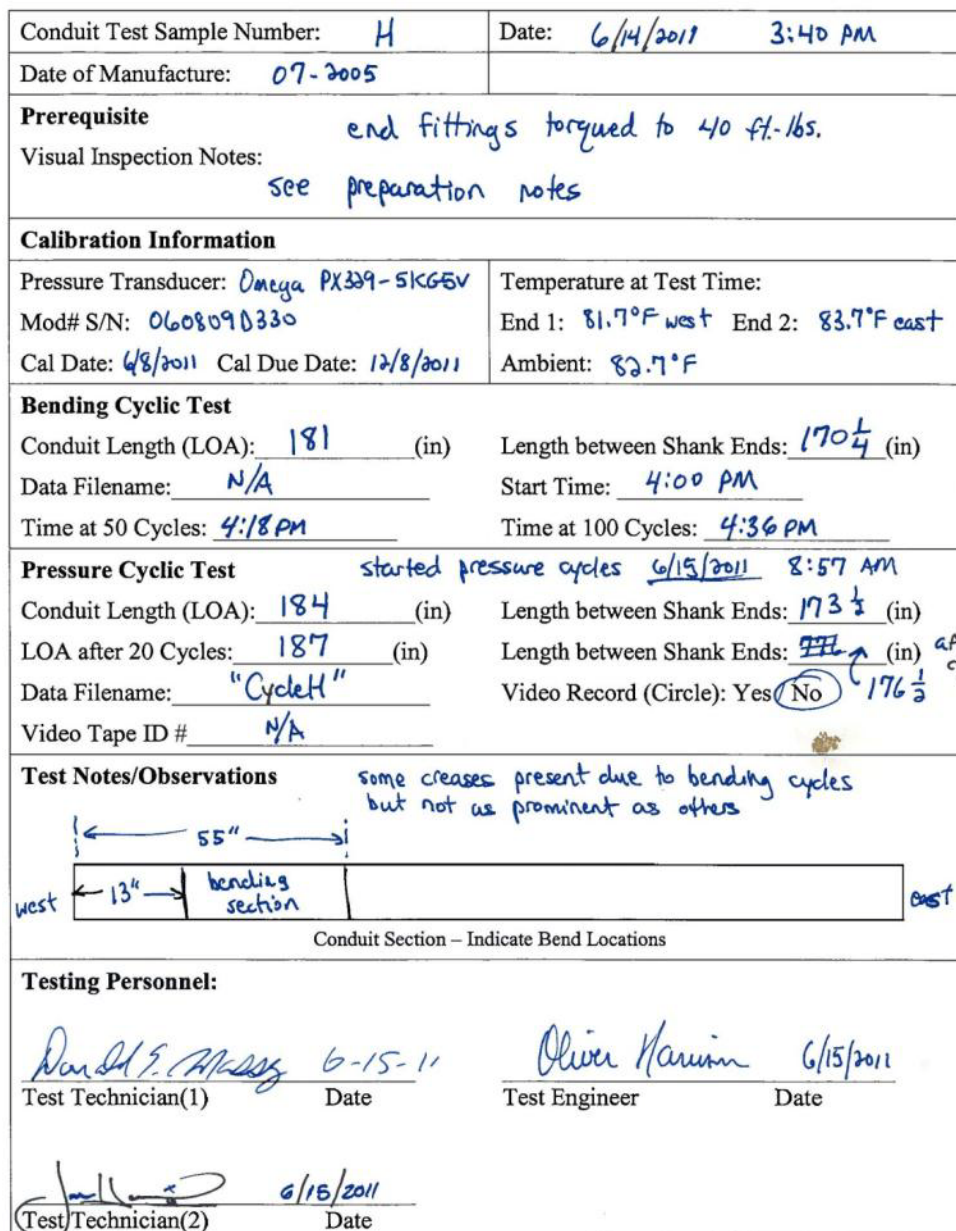 Conduit Test Sample Number: H Date: 6/14/2011 3:40 PM
Date of Manufacture: 07-2005
Prerequisite
end fittings torqued to 40 ft.-lbs.
Visual Inspection Notes:
see preparation notes
Calibration Information
Pressure Transducer: Omega PX329-5KG5V Temperature at Test Time:
Mod# S/N: 060809D330 End 1: 81.7°F west End 2: 83.7°F east
Cal Date: 6/8/2011 Cal Due Date: 12/8/2011 Ambient: 82.7°F
Bending Cyclic Test
Conduit Length (LOA): 181 (in) Length between Shank Ends: 170 1/4 (in)
Data Filename: N/A Start Time: 4:00 PM
Time at 50 Cycles: 4:18 PM Time at 100 Cycles: 4:36 PM
Pressure Cyclic Test started pressure cycles 6/15/2011 8:57 AM
Conduit Length (LOA): 184 (in) Length between Shank Ends: 173 1/2 (in)
LOA after 20 Cycles: 187 (in) Length between Shank Ends: (in)
Data Filename: "CycleH" Video Record (Circle): Yes No 176 1/2
Video Tape ID # N/A
Test Notes/Observations some creases present due to bending cycles
but not as prominent as others
55"
west 13" bending section east
Conduit Section – Indicate Bend Locations
Testing Personnel:
6-15-11 Oliver 6/15/2011
Test Technician(1) Date Test Engineer Date
6/15/2011
Test Technician(2) Date